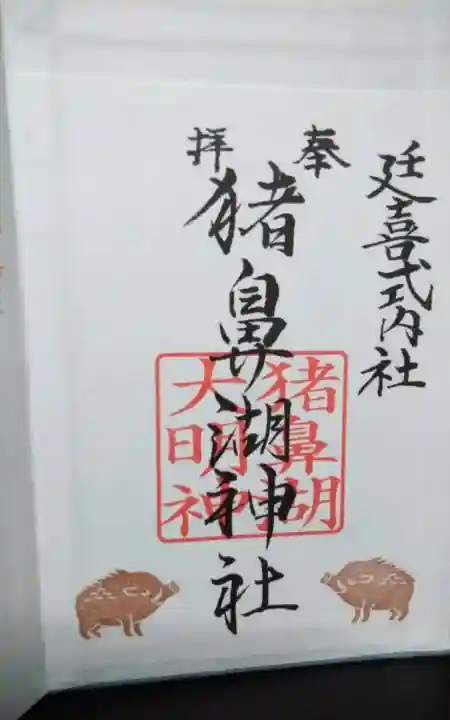 延喜式内社
奉
拝
猪鼻湖神社
猪鼻湖
大明神